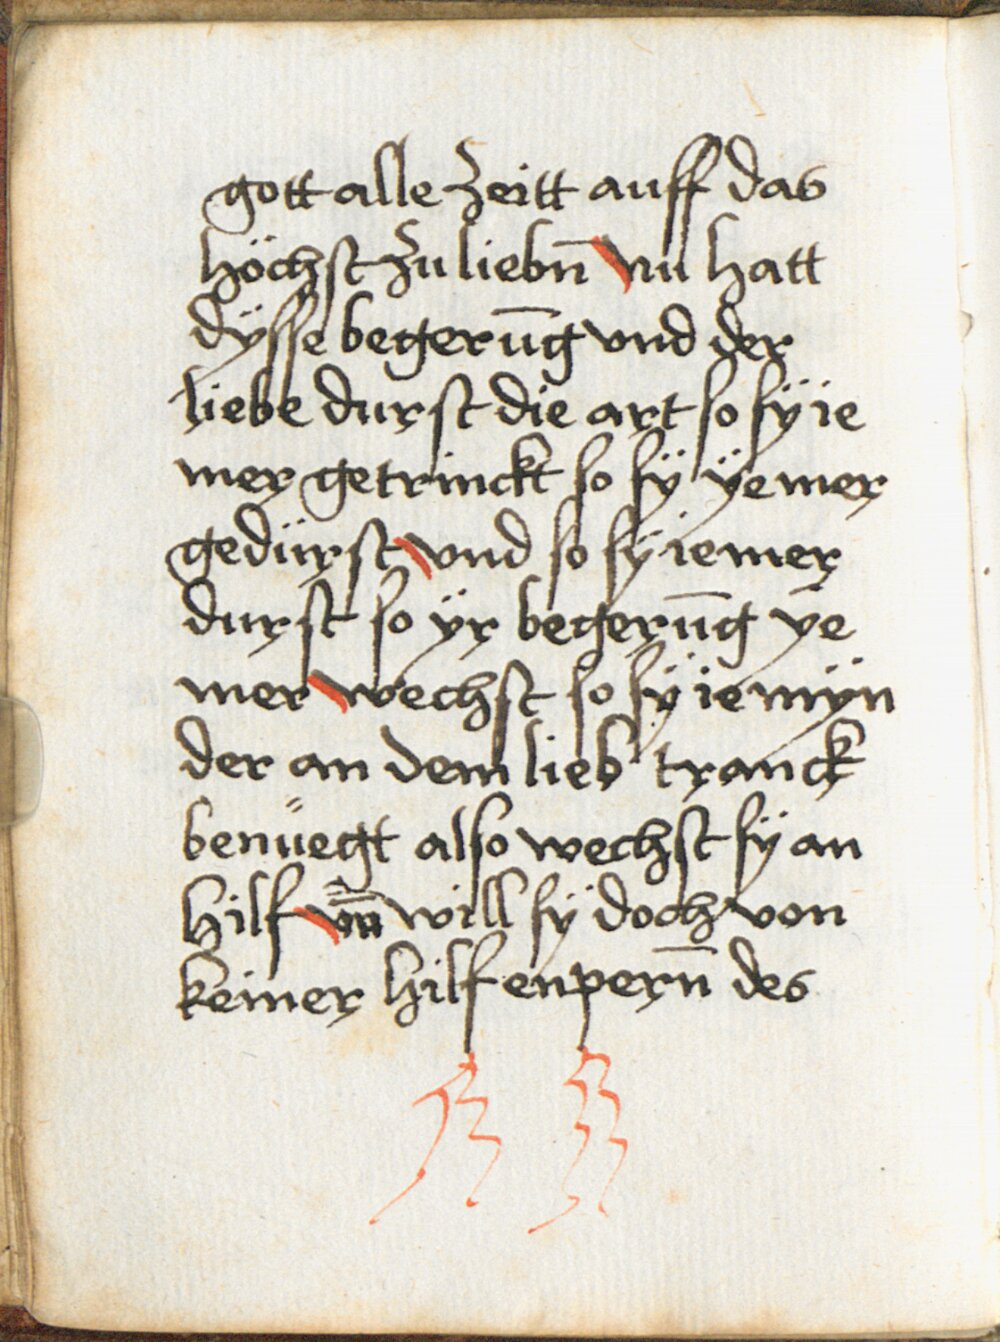 gott alle zeitt auff das
höchst zu liebn̄ nu hatt
dÿsse begerūg vnd der
liebe durst die art so sÿ ie
mer getrinckt so sÿ ÿe mer
gedürst vnd so sÿ ie mer
durst so ÿr begerūg ÿe
mer wechst so sÿ ie mÿn
der an dem lieb tranck
benüegt also wechst sÿ an
hilf vn̄ will sÿ doch von
keiner hilf enpern̄ des